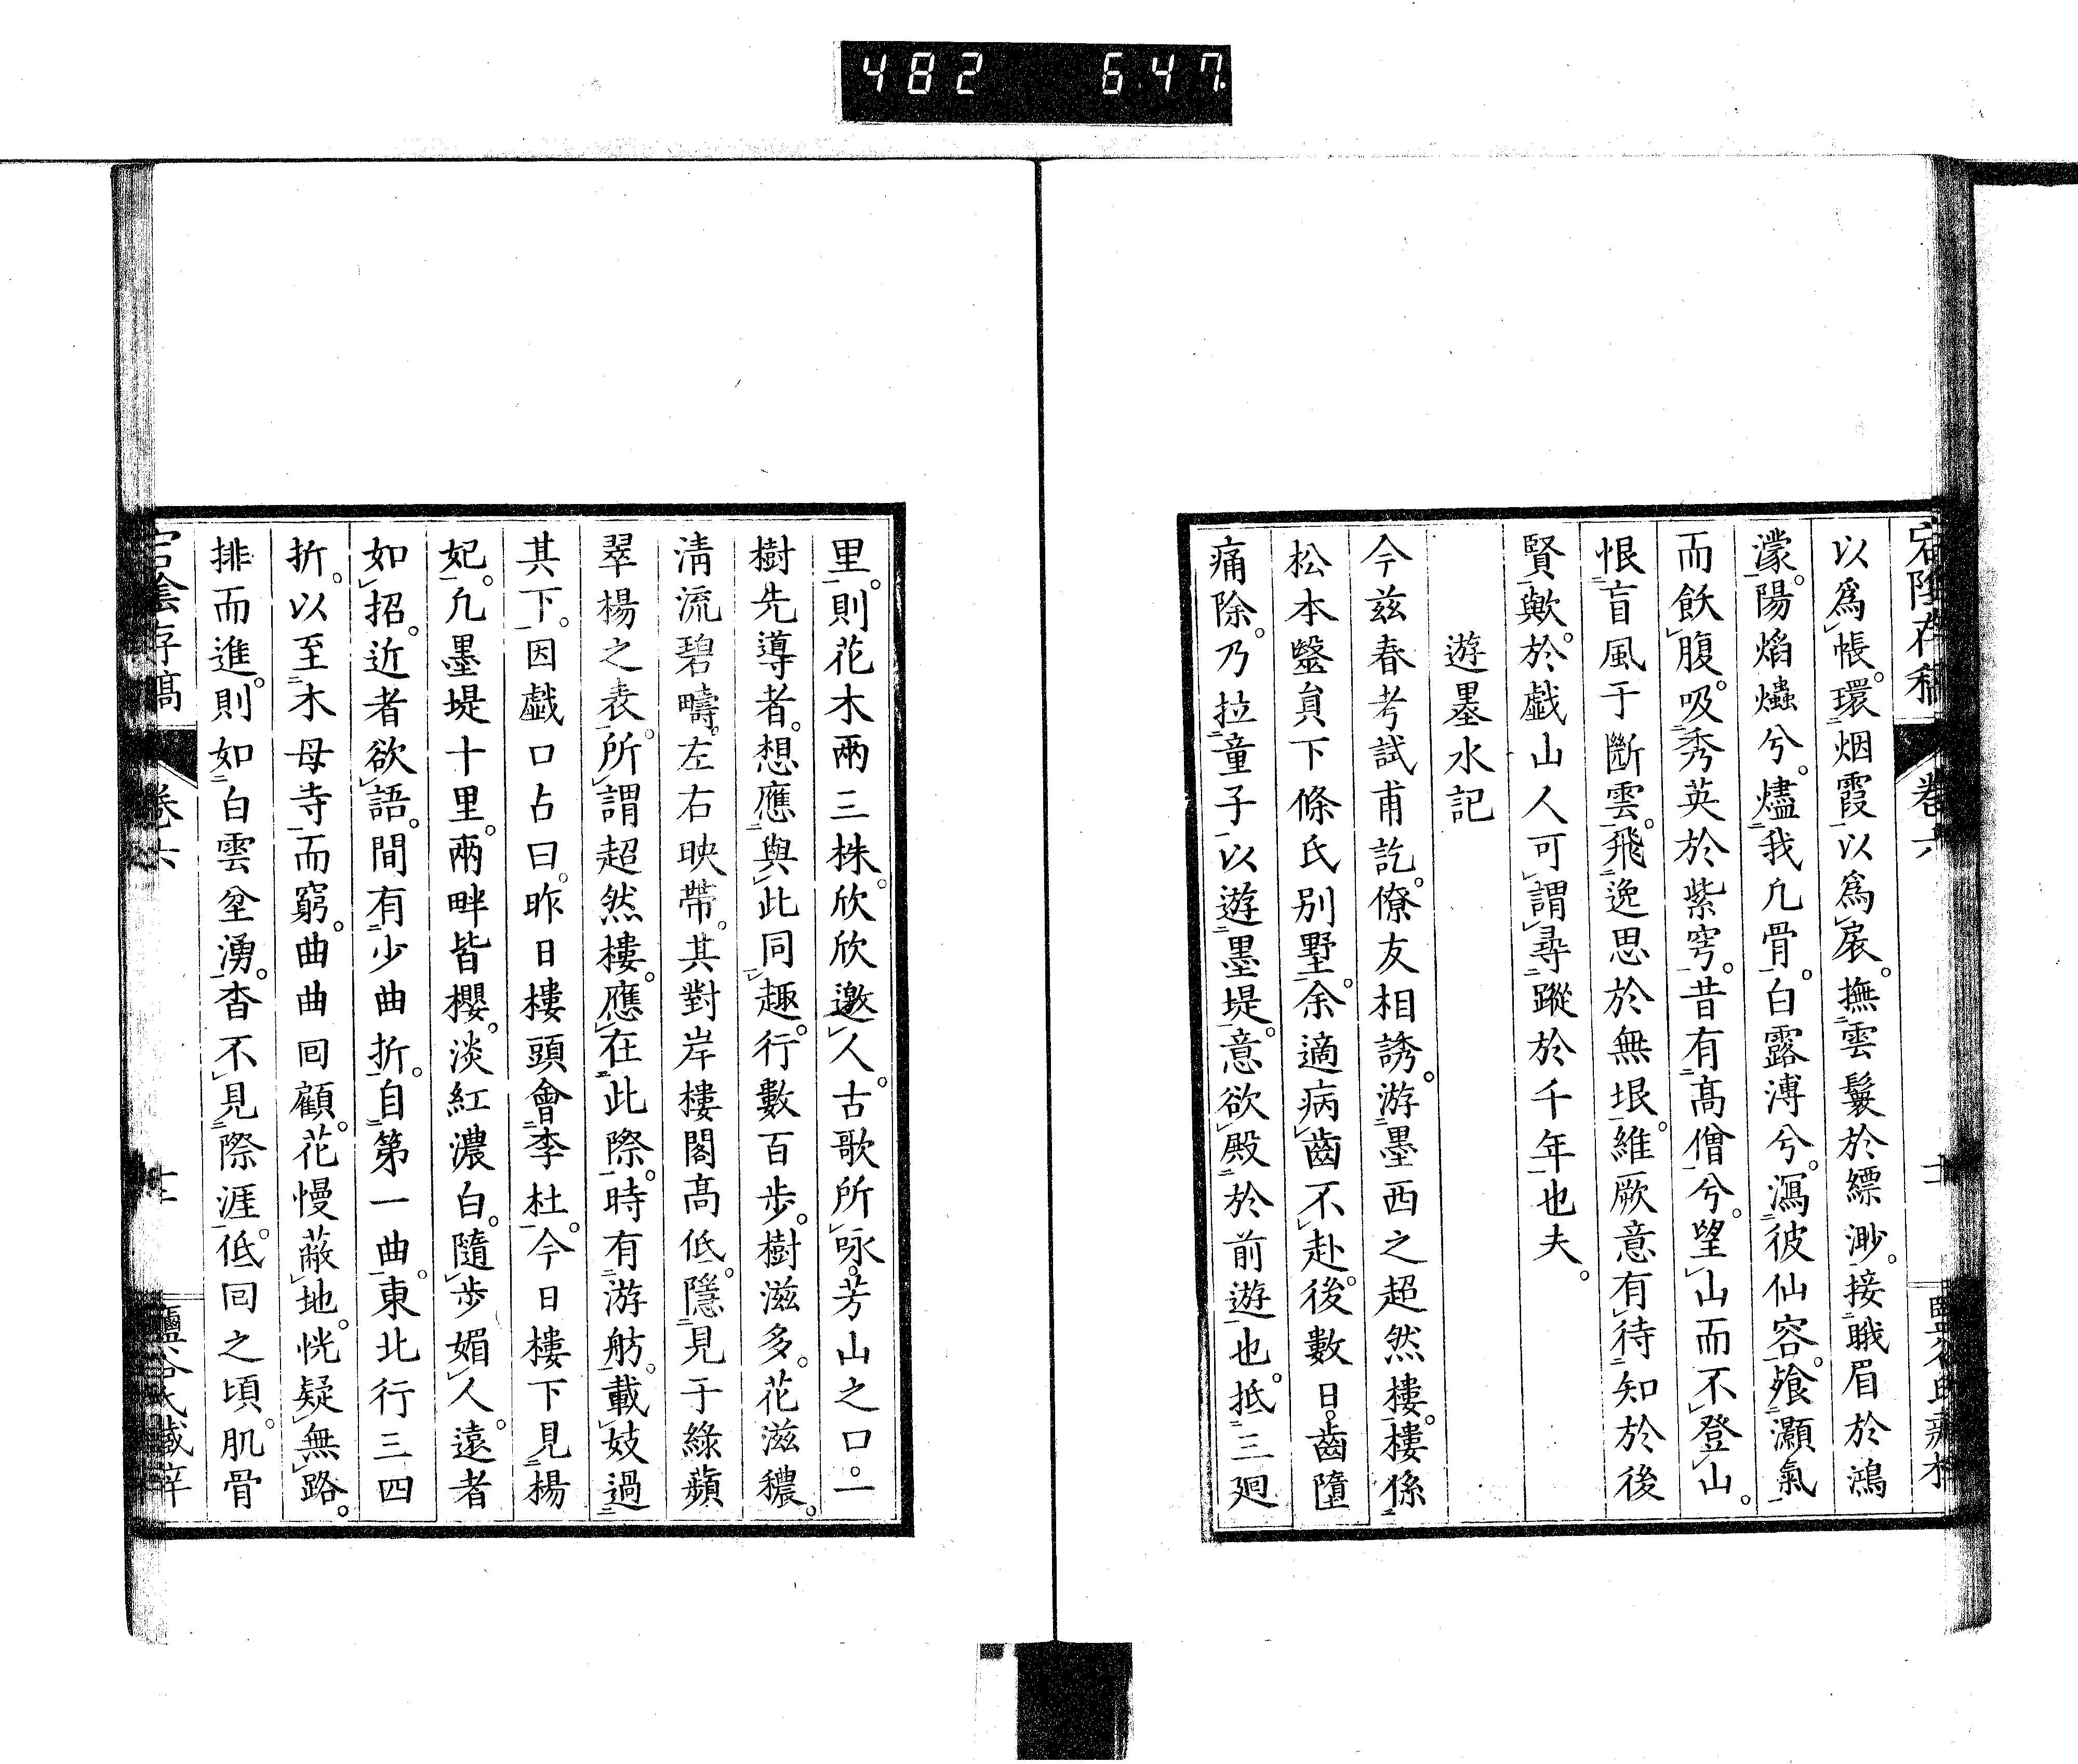 482 6.47.
宕陰存稿 卷六
以爲帳。環烟霞以爲扆。撫雲鬟於縹渺。接睋眉於鴻
濛。陽焰爞兮。燼我凡骨。白露漙兮。瀉彼仙容。飱灝氣
而飫腹。吸秀英於紫穹。昔有高僧兮。望山而不登山。
恨盲風于斷雲。飛逸思於無垠。維厥意有待知於後
賢歟。於戲山人可謂尋蹤於千年也夫。
遊墨水記
今兹春考試甫訖。僚友相誘。游墨西之超然樓。樓係
松本毉員下條氏別墅。余適病齒不赴。後數日。齒墮
痛除。乃拉童子以遊墨堤。意欲殿於前遊也。抵三廻
里。則花木兩三株。欣欣邀人。古歌所咏。芳山之口。一
樹先導者。想應與此同趣。行數百步。樹滋多。花滋穠。
淸流碧疇。左右映帶。其對岸樓閣高低。隱見于綠蘋
翠楊之表。所謂超然樓。應在此際。時有游舫。載妓過
其下。因戯口占曰。昨日樓頭會李杜。今日樓下見楊
妃。凢墨堤十里。兩畔皆櫻。淡紅濃白。隨步媚人。遠者
如招。近者欲語。間有少曲折。自第一曲。東北行三四
折。以至木母寺而窮。曲曲囘顧。花慢蔽地。恍疑無路。
排而進。則如白雲坌湧。杳不見際涯。低囘之頃。肌骨
宕陰存稿 卷六